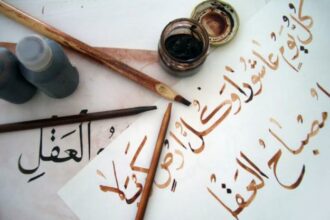 كُلُّ يَوم عاشُورا وكُلُّ ارضٍ كَربلا
مصباح العقل
العَقلِ